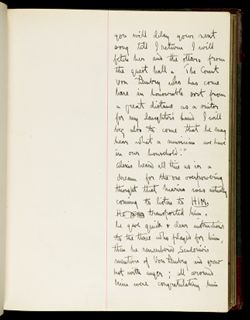 you will delay your next
song till I return I will
fetch her and the others from
the great hall & the Count
Von Dunburg who has come
here in honourable sort from
a great distance as a suitor
for my daughter's hand I will
beg also to come that he may
hear what a musician we have
in our household."
Alexis heard all this as in a
dream for the one overpowering
thought that Marina was actually
coming to listen to HIM,
HE transported him.
he gave quick & clear instructions
to the three who played for him,
then he remembered
mention of Von Dunburg and grew
hot with anger; all around
him were congratulating him